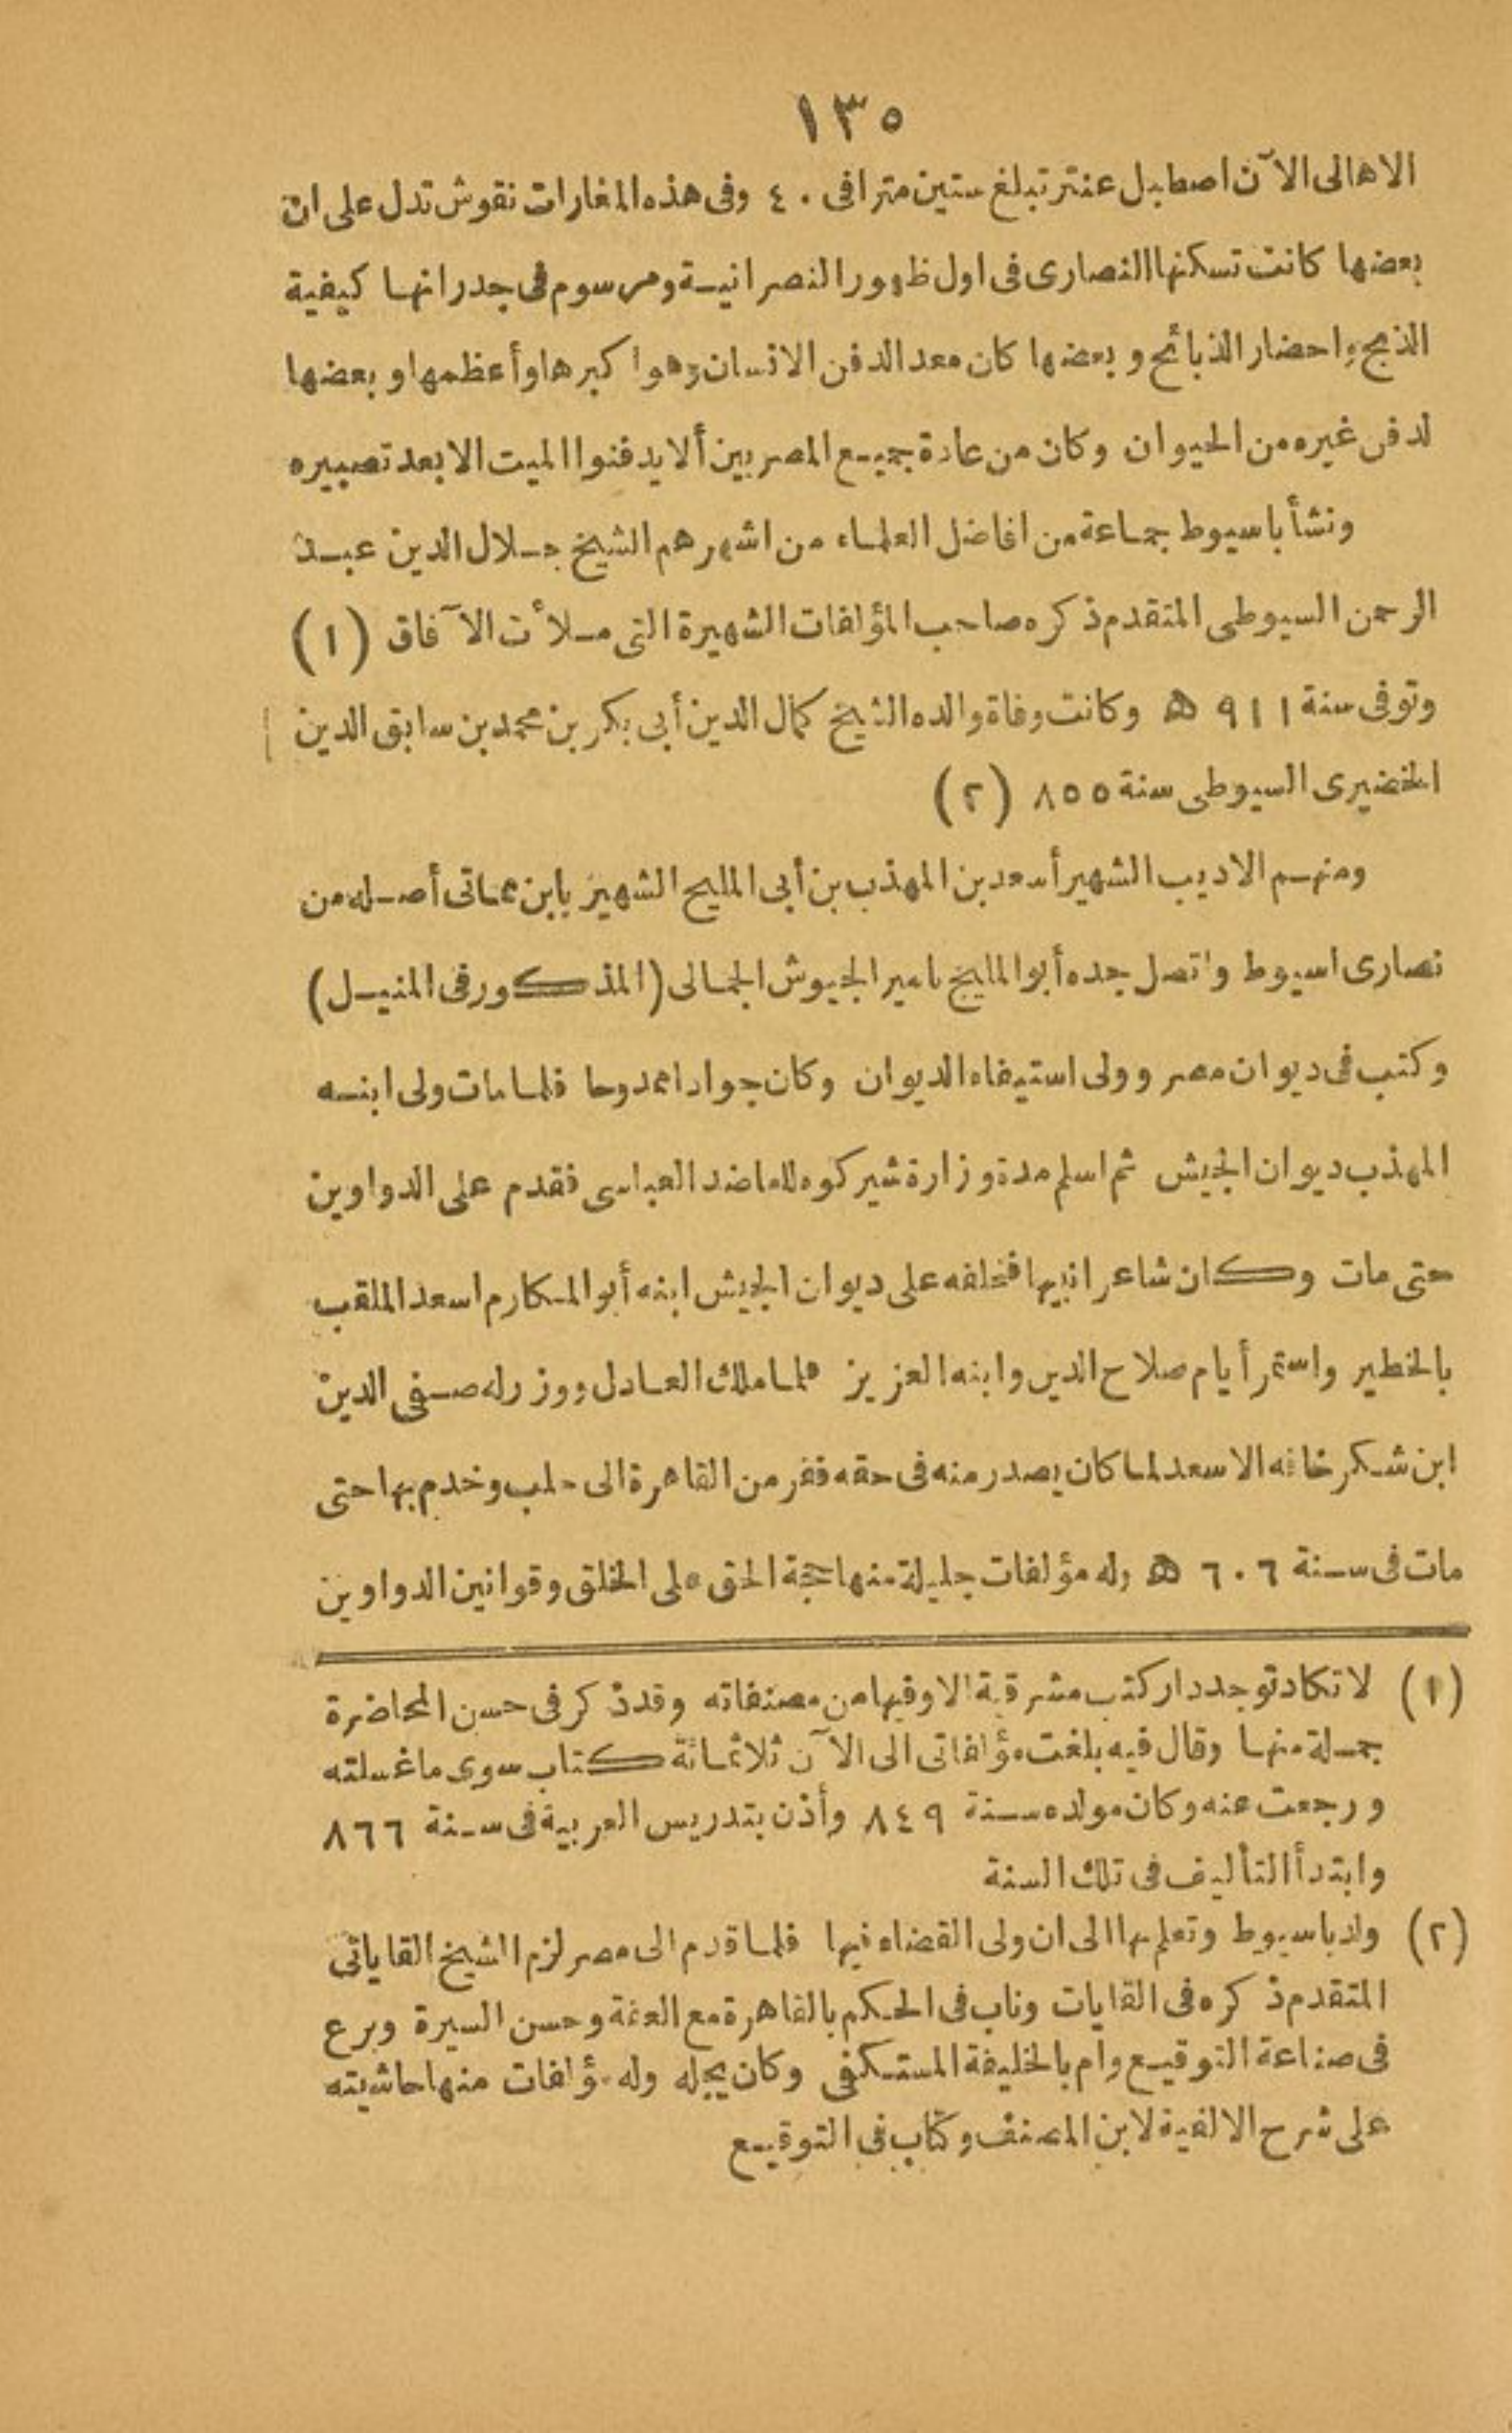 ١٣٥
الاهالى الآن اصطبل عنتر تبلغ ستين مترا فى ٤٠ وفى هذه المغارات نقوش تدل على ان
بعضها كانت تسكنها النصارى فى اول ظهور النصرانية ومرسوم فى جدرانها كيفية
الذبح واحضار الذبائح وبعضها كان معدا لدفن الانسان وهو اكبرها وأعظمها وبعضها
لدفن غيره من الحيوان وكان من عادة جميع المصريين ألا يدفنوا الميت الا بعد تصبيره
ونشأ باسيوط جماعة من افاضل العلماء من اشهرهم الشيخ جلال الدين عبد
الرحمن السيوطى المتقدم ذكره صاحب المؤلفات الشهيرة التى ملأت الآفاق (١)
وتوفى سنة ٩١١ ه وكانت وفاة والده الشيخ كمال الدين أبى بكر بن محمد بن سابق الدين
الخضيرى السيوطى سنة ٨٥٥ (٢)
ومنهم الاديب الشهير أسعد بن المهذب بن أبى المليح الشهير بابن مماتى أصله من
نصارى اسيوط واتصل جده أبو المليح بامير الجيوش الجمالى (المذكور فى المنيل)
وكتب فى ديوان مصر وولى استيفاء الديوان وكان جوادا ممدوحا فلما مات ولى ابنه
المهذب ديوان الجيش ثم اسلم مدة وزارة شيركوه للعاضد العباسى فقدم على الدواوين
حتى مات وكان شاعرا نبيها فخلفه على ديوان الجيش ابنه أبو المكارم اسعد الملقب
بالخطير واستمر أيام صلاح الدين وابنه العزيز فلما ملك العادل ووزر له صفى الدين
ابن شكر خافه الاسعد لما كان يصدر منه فى حقه ففر من القاهرة الى حلب وخدم بها حتى
مات فى سنة ٦٠٦ ه وله مؤلفات جليلة منها حجة الحق على الخلق وقوانين الدواوين
(١) لا تكاد توجد دار كتب مشرقية الا وفيها من مصنفاته وقد ذكر فى حسن المحاضرة
جملة منها وقال فيه بلغت مؤلفاتى الى الآن ثلاثمائة كتاب سوى ما غسلته
ورجعت عنه وكان مولده سنة ٨٤٩ وأذن بتدريس العربية فى سنة ٨٦٦
وابتدأ التأليف فى تلك السنة
(٢) ولد باسيوط وتعلم بها الى ان ولى القضاء فيها فلما قدم الى مصر لزم الشيخ القاياتى
المتقدم ذكره فى القايات وناب فى الحكم بالقاهرة مع العفة وحسن السيرة وبرع
فى صناعة التوقيع وام بالخليفة المستكفى وكان يجله وله مؤلفات منها حاشيته
على شرح الالفية لابن المصنف وكتاب فى التوقيع